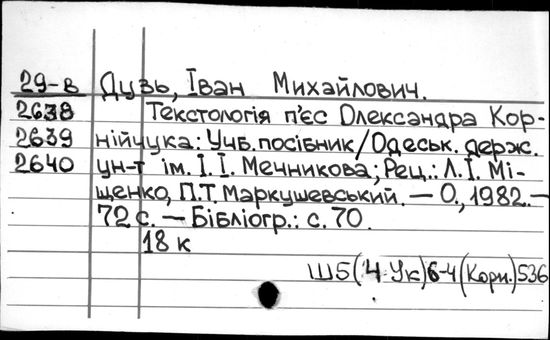 29-в Дузь, Іван Михайлович.
2638 Текстологія п'єс Олександра Кор-
2639 нійчука: Учб. посібник/Одеськ. держ.
2640 ун-т ім. І. І. Мечникова; Рец.: Л. І. Мі-
щенко, П. Т. Маркушевський. — О., 1982. —
72 с. — Бібліогр.: с. 70.
18 к
Ш5(4 Ук)6-4(Корн.)536